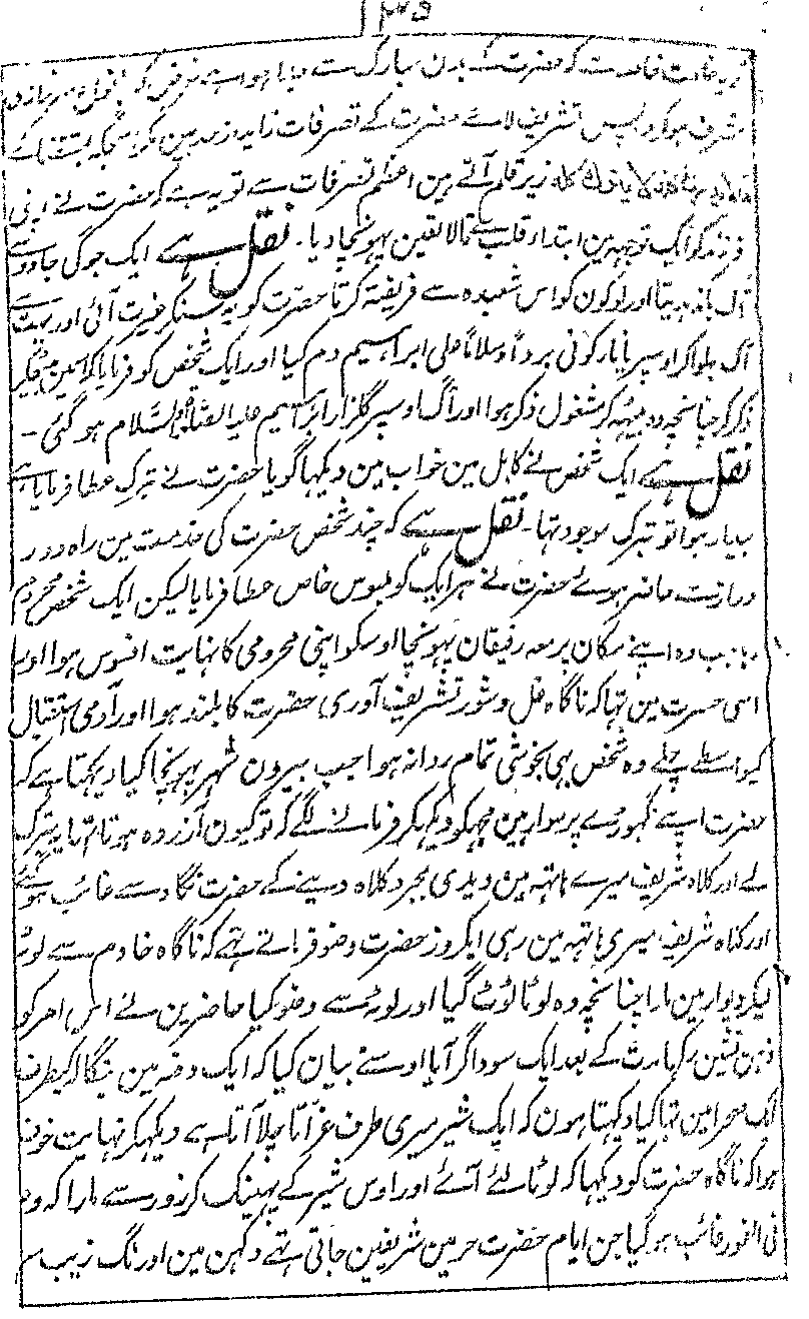 ۱۳۵
حضرت کے بدن مبارک سے
مشرف ہو کر واپس تشریف لائے حضرت کے تصرفات زاید از حد ہین مگر
زیر قلم آتے ہین اعظم تصرفات سے تو یہ ہے کہ حضرت نے اپنی
فرزند کو ایک توجہ مین ابتداء قلب سے تا لا تعین پہونچا دیا۔ نقل ہے ایک جوگی جادو سے
آگ باندہ دیتا اور لوگون کو اس شعبدہ سے فریفتہ کرتا حضرت کو یہ سنکر غیرت آئی اور بہت سے
آگ جلوا کر اوسپر یا نار کونی برداً و سلاماً علی ابراہیم دم کیا اور ایک شخص کو فرمایا کہ اسمین بیٹھکر
ذکر کر چنانچہ وہ بیٹہہ کر مشغول ذکر ہوا اور آگ اوسپر گلزار ابراہیم علیہ الصلوٰۃ والسّلام ہو گئی۔
نقل ہے ایک شخص نے کابل مین خواب مین دیکہا گویا حضرت نے تبرک عطا فرمایا ہے
بیدار ہوا تو تبرک موجود تہا۔ نقل ہے کہ چند شخص حضرت کی خدمت مین راہ دور
دراز سے حاضر ہوئے حضرت نے ہر ایک کو ملبوس خاص عطا فرمایا لیکن ایک شخص محروم
رہا جب وہ اپنے مکان پر معہ رفیقان پہونچا اوسکو اپنی محرومی کا نہایت افسوس ہوا اور
اسی حسرت مین تہا کہ ناگاہ غل و شور تشریف آوری حضرت کا بلند ہوا اور آدمی استقبال
کیواسطے چلے وہ شخص بہی بخوشی تمام روانہ ہوا جب بیرون شہر پہونچا کیا دیکہتا ہے کہ
حضرت اپنے گہوڑے پر سوار ہین مجہکو دیکہکر فرمانے لگے کہ تو کیون آزردہ ہوتا تہا یہ تبرک
لے اور کلاہ شریف میرے ہاتہہ مین دیدی بمجرد کلاہ دینے کے حضرت نگاہ سے غائب ہو گئے
اور کلاہ شریف میری ہاتہہ مین رہی ایکروز حضرت وضو فرماتے تہے کہ ناگاہ خادم سے لوٹا
لیکر دیوار مین مارا چنانچہ وہ لوٹا ٹوٹ گیا اور لوٹے سے وضو کیا حاضرین نے اس امر کو
ذہن نشین رکہا مدت کے بعد ایک سوداگر آیا اوسنے بیان کیا کہ ایک دفعہ مین بنگالہ کیطرف
ایک صحرا مین تہا کیا دیکہتا ہون کہ ایک شیر میری طرف غراتا چلا آتا ہے دیکہکر نہایت خوف
ہوا کہ ناگاہ حضرت کو دیکہا کہ لوٹا لئے آئے اور اوس شیر کے پہینک کر زور سے مارا کہ وہ
فی الفور غائب ہو گیا جن ایام حضرت حرمین شریفین جاتی تہے دکہن مین اورنگ زیب